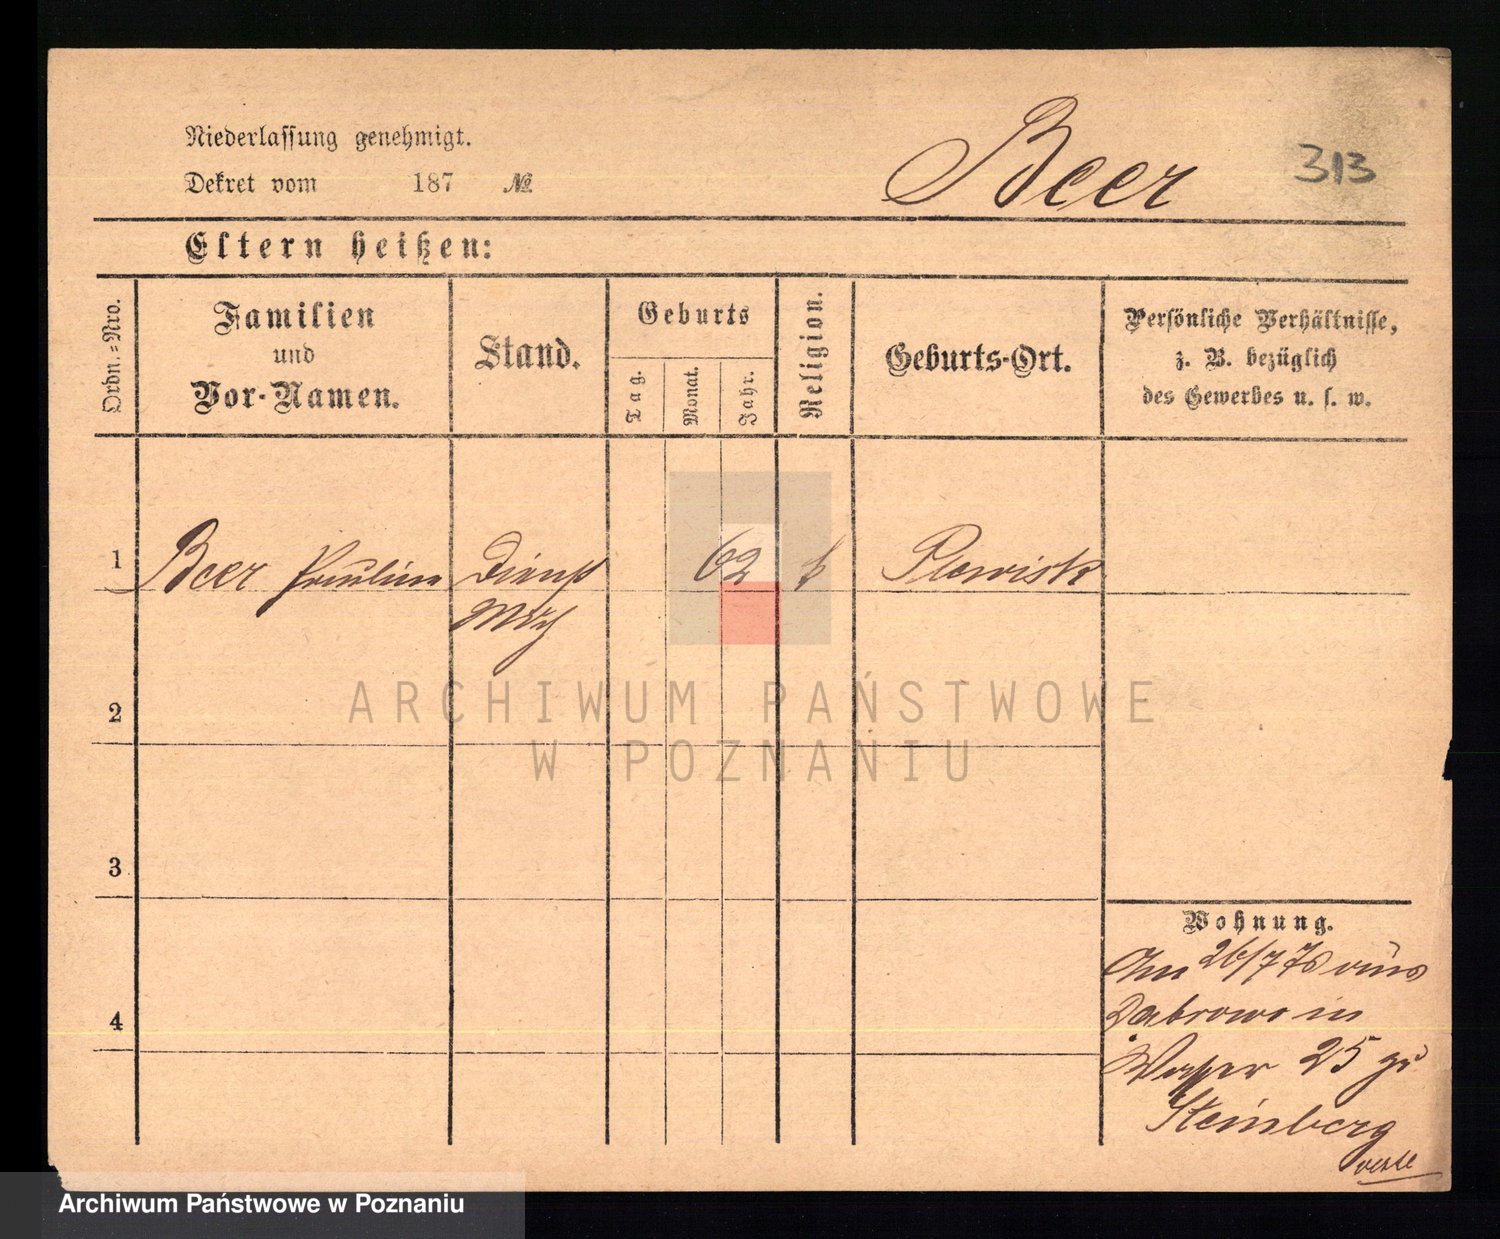 Niederlassung genehmigt.
Dekret vom 187 №
Beer
313
Eltern heißen:
Ordn.=Nro.
Familien
und
Vor-Namen.
Stand.
Geburts
Tag.
Monat.
Jahr.
Religion.
Geburts-Ort.
Persönliche Verhältnisse,
z. B. bezüglich
des Gewerbes u. s. w.
1
Beer Pauline
Dienst
62
Plewisk
2
ARCHIWUM PAŃSTWOWE
W POZNANIU
3
Wohnung.
Am 26/7 78 aus
Dabrowo in
4
Wasser 25 zu
Steinberg
Archiwum Państwowe w Poznaniu